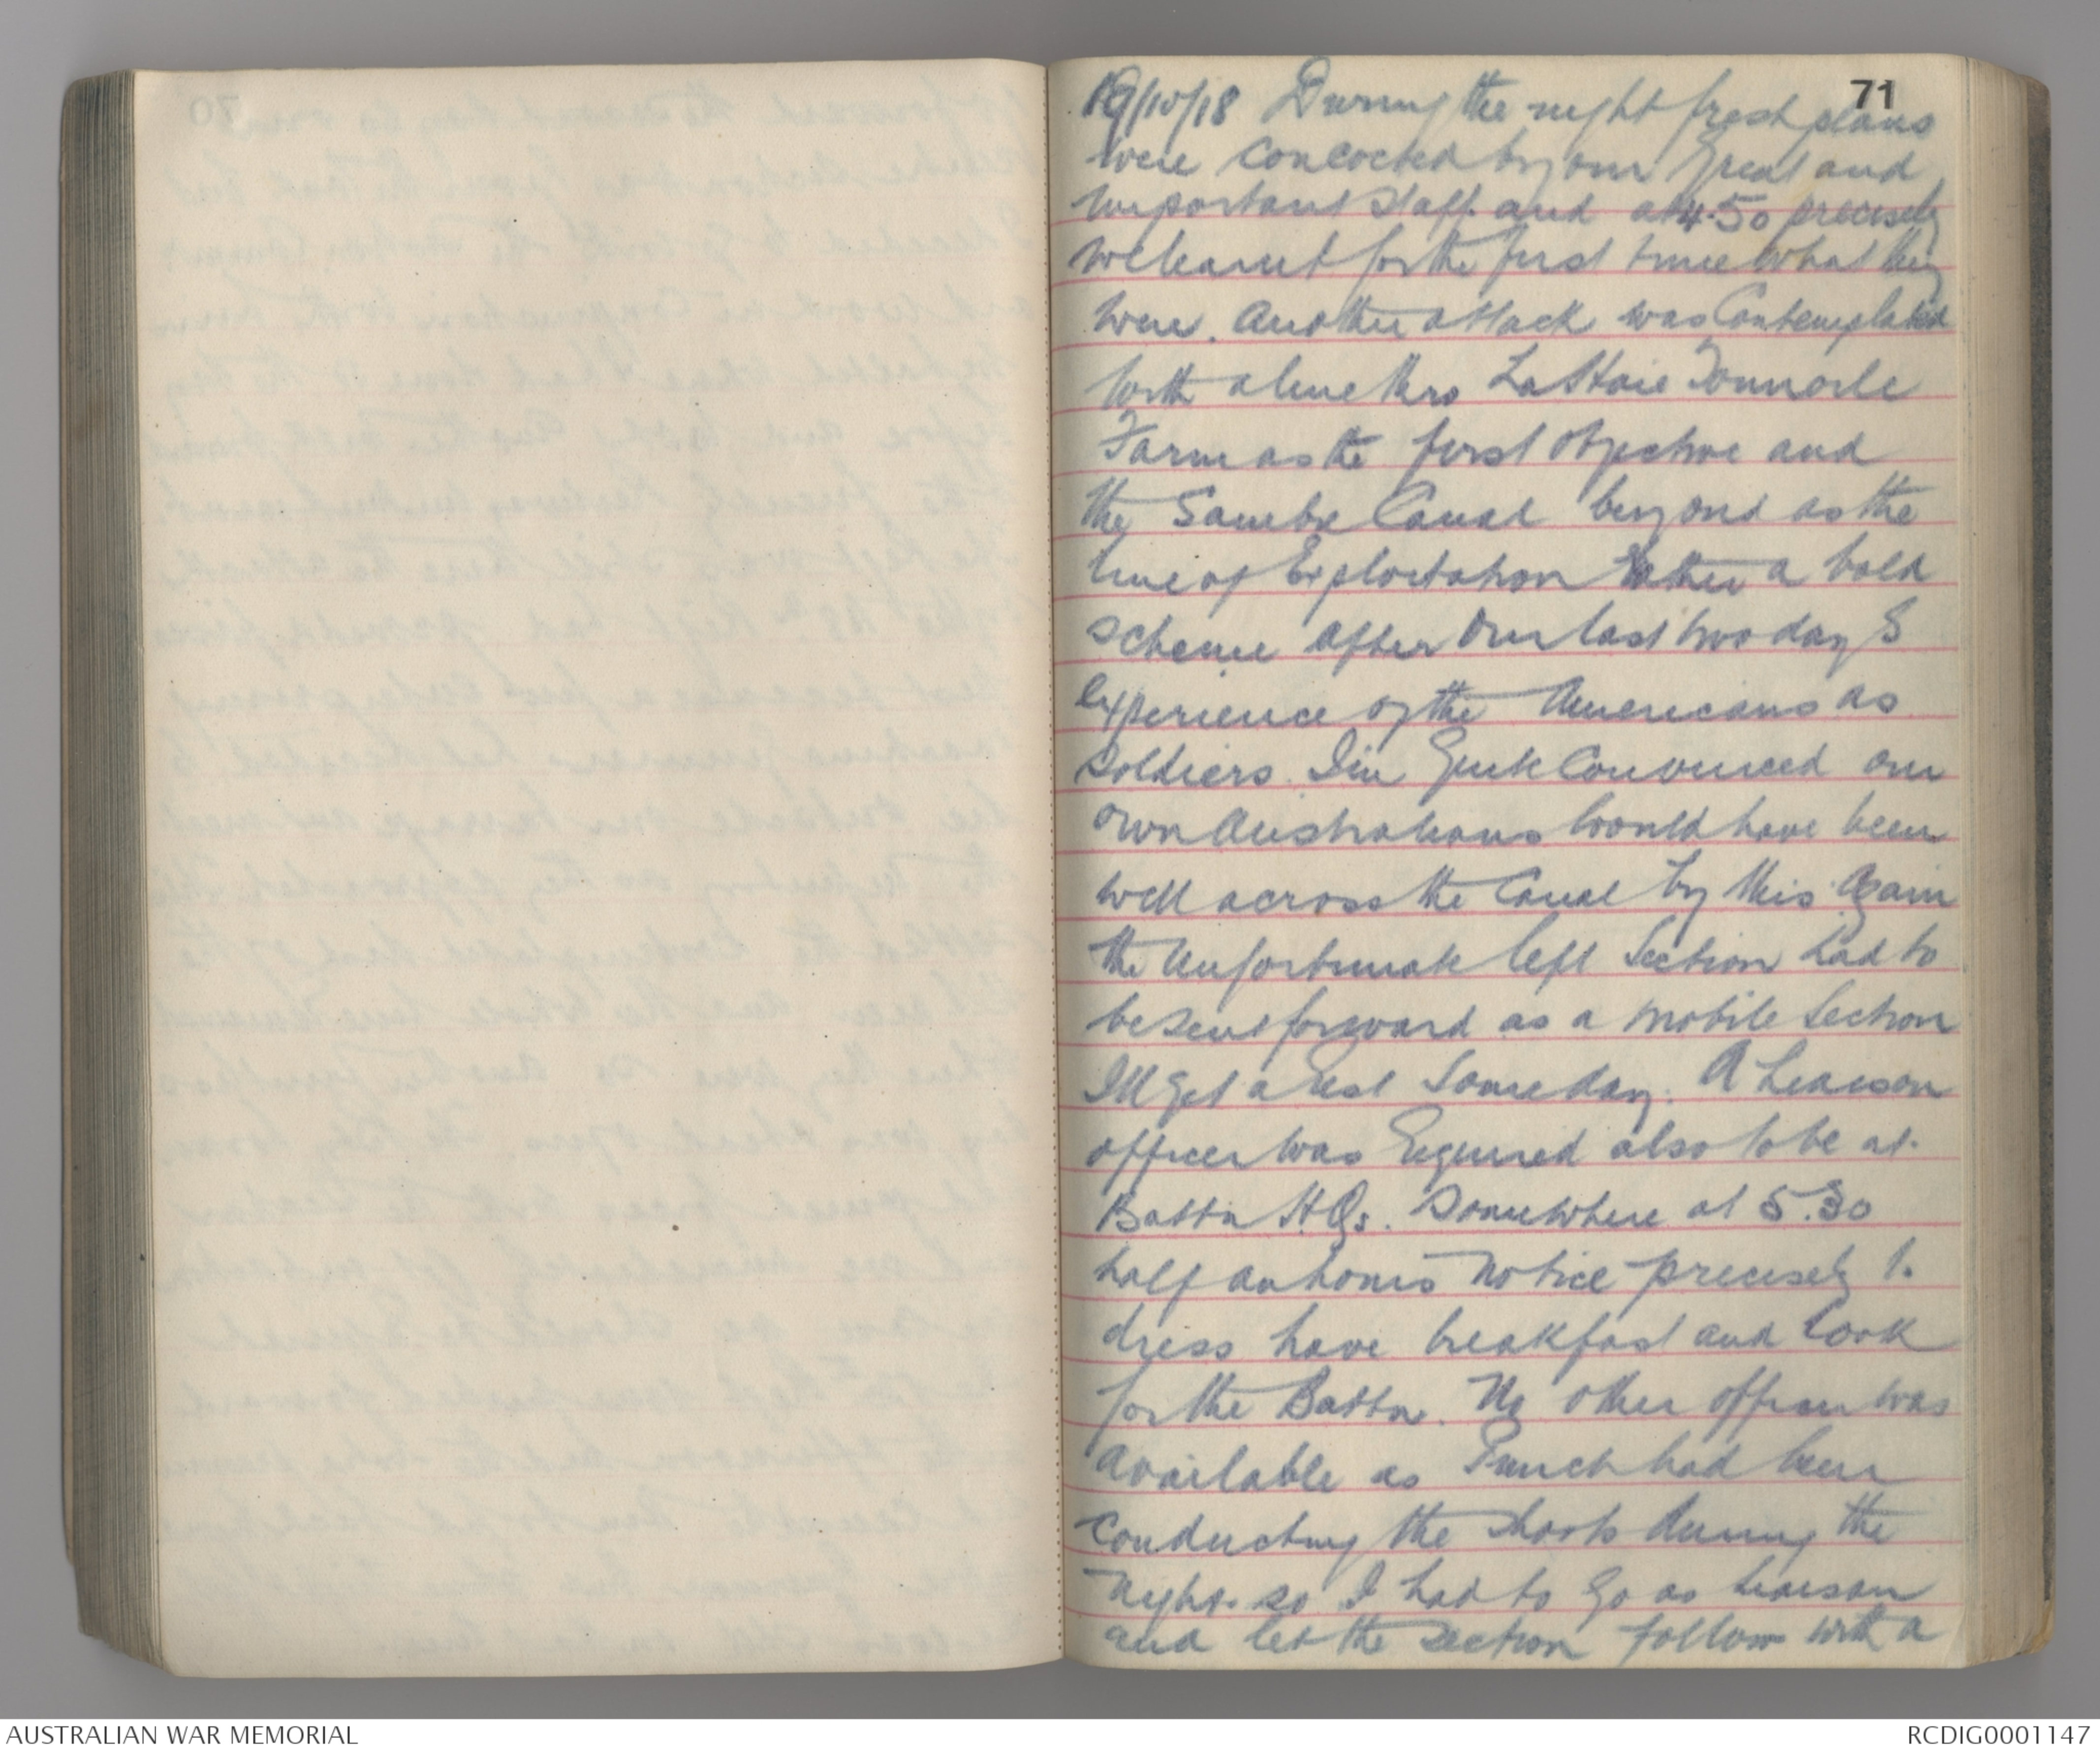 71
19/10/18 During the night fresh plans
were concocted by our great and
important staff. and at 4.50 precisely
we learnt for the first time what they
were. Another attack was contemplated
with a line thro La Haie Tonnoile
Farm as the first objective and
the Sambre Canal beyond as the
line of Exploitation Rather a bold
scheme after our last two day S
experience of the Americans as
soldiers. I'm quite convinced our
own Australians would have been
well across the Canal by this. Again
the unfortunate left Section had to
be sent forward as a mobile Section
Ill get a rest Someday. A Liaison
officer was required also to be at.
Battn HQs. Somewhere at 5.30
half an hours notice precisely to
dress have breakfast and look
for the Battn. No other officer was
available as Punch had been
conducting the shoots during the
night. so I had to go as liaison
and let the section follow with a
AUSTRALIAN WAR MEMORIAL
RCDIG0001147